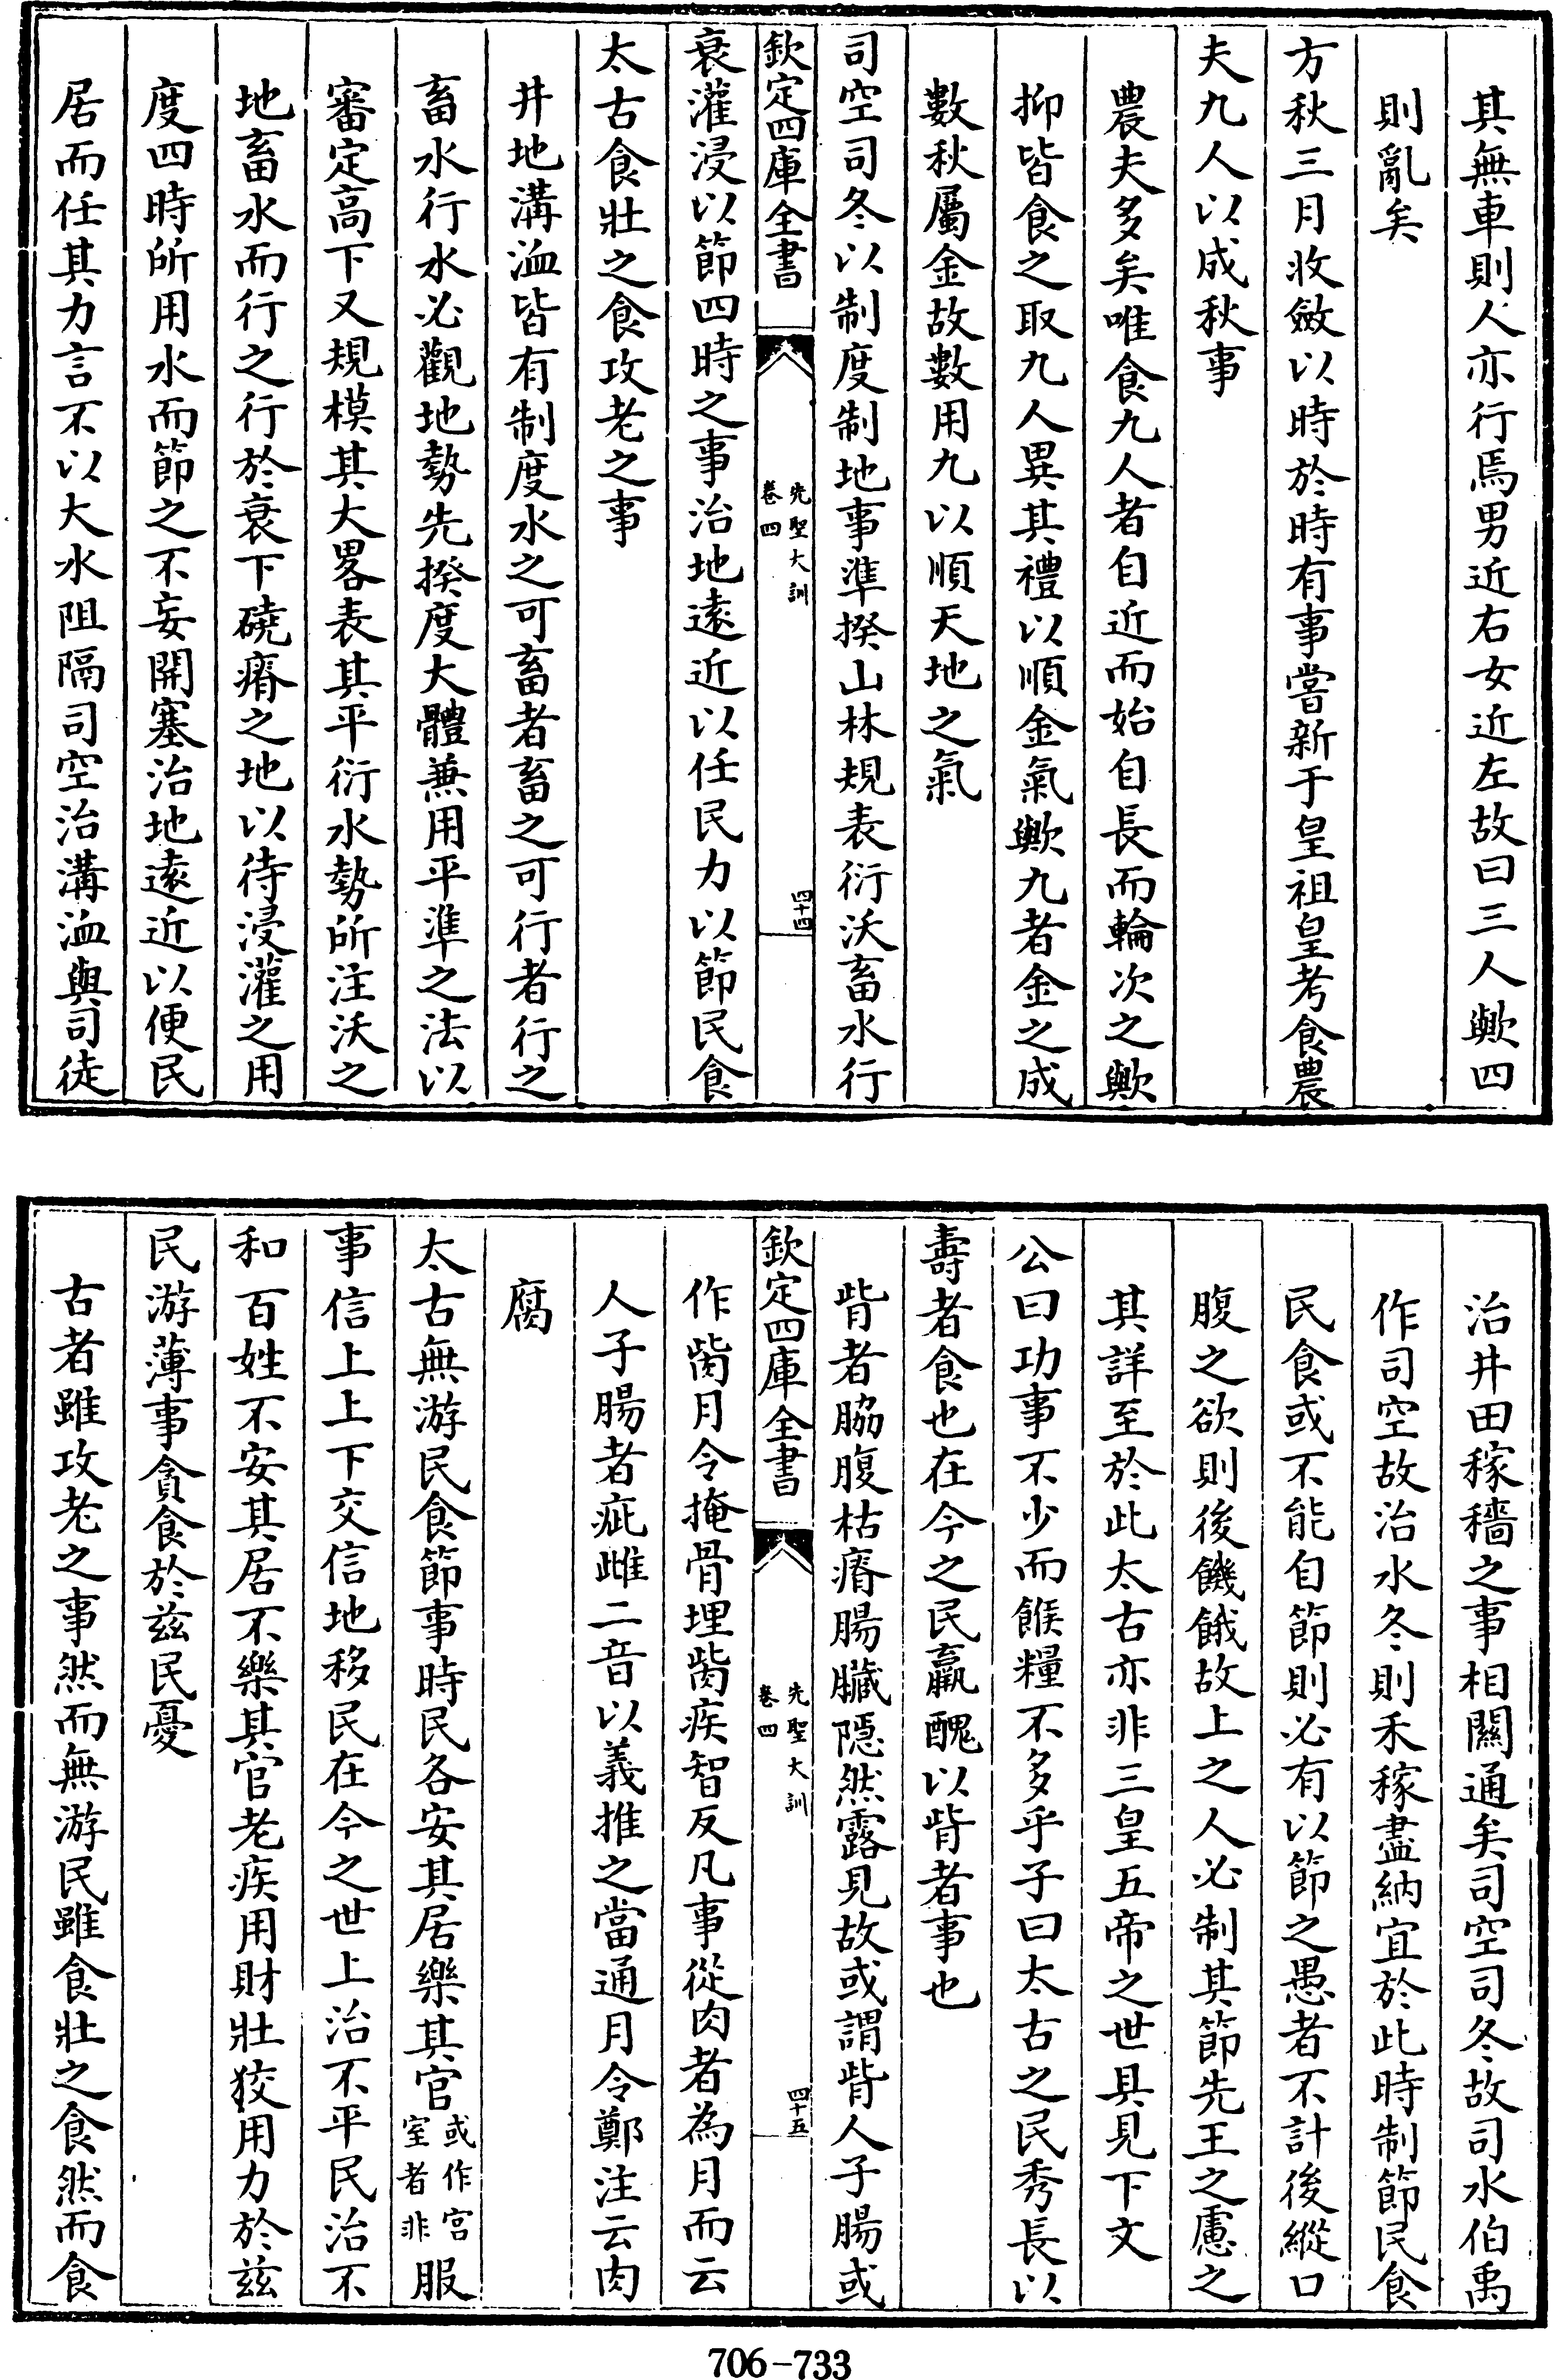 其無車則人亦行焉男近右女近左故曰三人歟四
則亂矣
方秋三月收斂以時於時有事嘗新于皇祖皇考食農
夫九人以成秋事
農夫多矣唯食九人者自近而始自長而輪次之歟
抑皆食之取九人異其禮以順金氣歟九者金之成
數秋屬金故數用九以順天地之氣
司空司冬以制度制地事準揆山林規表衍沃畜水行
欽定四庫全書
先聖大訓
卷四
四十四
衰灌浸以節四時之事治地遠近以任民力以節民食
太古食壯之食攻老之事
井地溝洫皆有制度水之可畜者畜之可行者行之
畜水行水必觀地勢先揆度大體兼用平準之法以
審定高下又規模其大畧表其平衍水勢所注沃之
地畜水而行之行於衰下磽瘠之地以待浸灌之用
度四時所用水而節之不妄開塞治地遠近以便民
居而任其力言不以大水阻隔司空治溝洫與司徒
治井田稼穡之事相關通矣司空司冬故司水伯禹
作司空故治水冬則禾稼盡納宜於此時制節民食
民食或不能自節則必有以節之愚者不計後縱口
腹之欲則後饑餓故上之人必制其節先王之慮之
其詳至於此太古亦非三皇五帝之世具見下文
公曰功事不少而餱糧不多乎子曰太古之民秀長以
壽者食也在今之民羸醜以胔者事也
胔者脇腹枯瘠腸臟隱然露見故或謂胔人子腸或
欽定四庫全書
先聖大訓
卷四
四十五
作胔月令掩骨埋胔疾智反凡事從肉者為月而云
人子腸者疵雌二音以義推之當通月令鄭注云肉
腐
太古無游民食節事時民各安其居樂其官或作宮室者非服
事信上上下交信地移民在今之世上治不平民治不
和百姓不安其居不樂其官老疾用財壯狡用力於兹
民游薄事貪食於兹民憂
古者雖攻老之事然而無游民雖食壯之食然而食
706-733